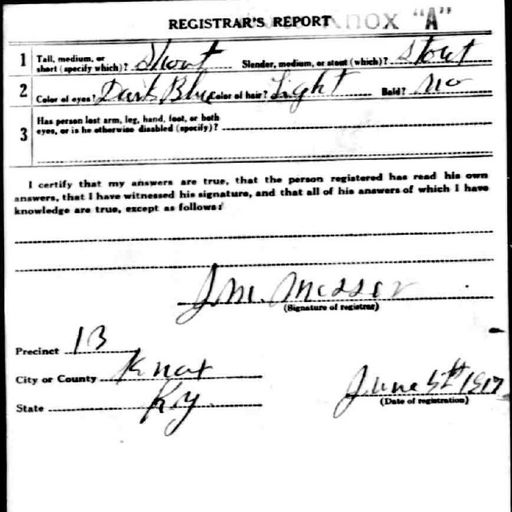 REGISTRAR'S REPORT KNOX "A"
1 Tall, medium, or short (specify which)? Short Slender, medium, or stout (which)? Stout
2 Color of eyes? Dark Blue Color of hair? Light Bald? No
3 Has person lost arm, leg, hand, foot, or both
eyes, or is he otherwise disabled (specify)?
I certify that my answers are true, that the person registered has read his own
answers, that I have witnessed his signature, and that all of his answers of which I have
knowledge are true, except as follows:
J. M. Messer
(Signature of registrar)
Precinct 13
City or County Knox
State Ky.
June 5th 1917
(Date of registration)